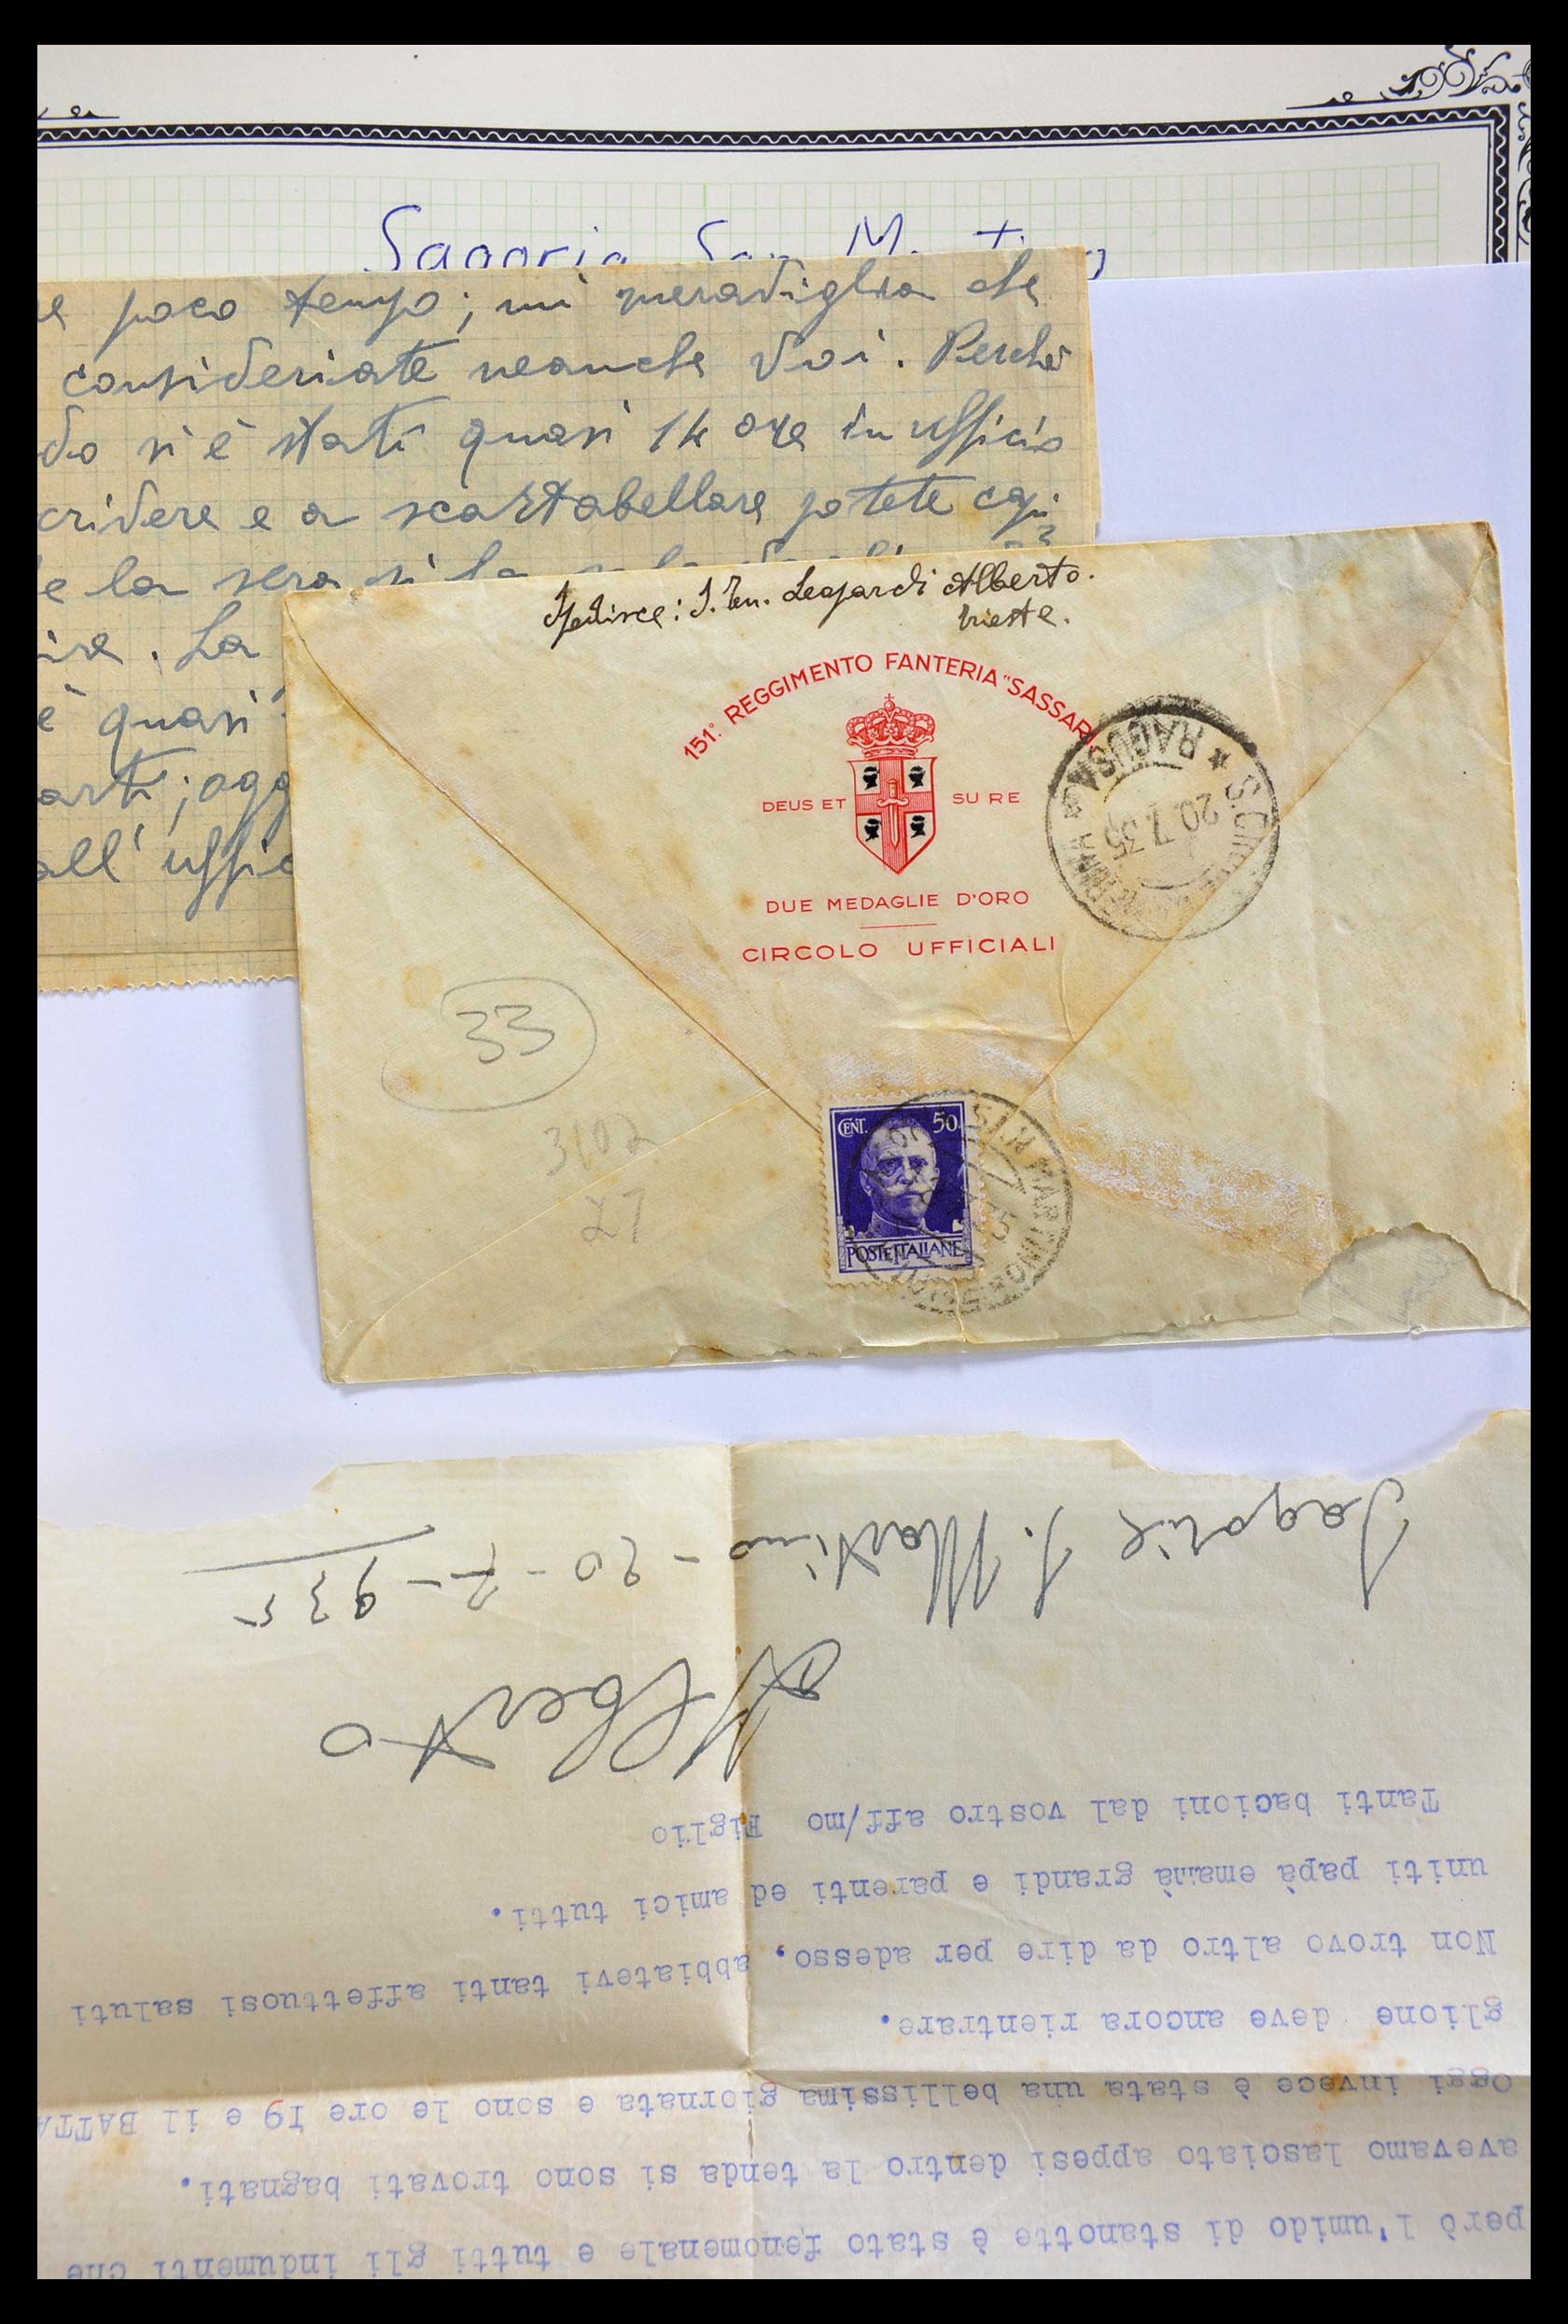 Sagoria San Martino
poco tempo; mi meraviglia che
consideriate neanche voi. Perchè
do si è stati quasi 14 ore in ufficio
crivere e a scartabellare potete capi
e la sera si
ire. La
è quasi
arti; ogg
all' uffic
Spedisce: S. Ten. Leopardi Alberto.
Trieste.
151° REGGIMENTO FANTERIA "SASSAR
DEUS ET SU RE
DUE MEDAGLIE D'ORO
CIRCOLO UFFICIALI
* RAGUSA *
20.7.35
33
3102
27
CENT. 50
POSTE ITALIANE
S. MARTINO
però l'umido di stanotte è stato fenomenale e tutti gli indumenti che
avevamo lasciato appesi dentro la tenda si sono trovati bagnati.
Oggi invece è stata una bellissima giornata e sono le ore I9 e il BATTA
glione deve ancora rientrare.
Non trovo altro da dire per adesso, abbiatevi tanti affettuosi saluti
uniti papà emamà grandi e parenti ed amici tutti.
Tanti bacioni dal vostro aff/mo Figlio
Alberto
Sagorie S. Martino - 20 - 7 - 935